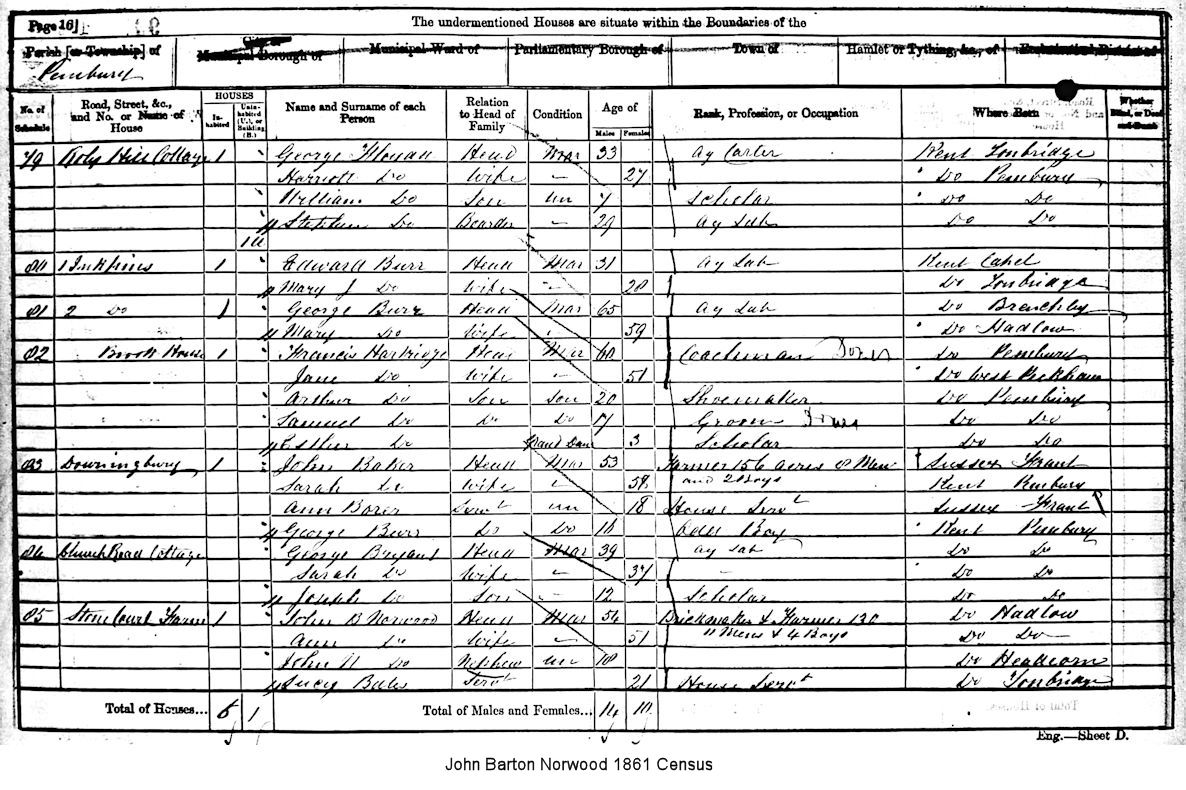 Page 16]
The undermentioned Houses are situate within the Boundaries of the
Parish [or Township] of
City or Municipal Borough of
Municipal Ward of
Parliamentary Borough of
Town of
Hamlet or Tything, &c., of
Ecclesiastical District of
Pembury
No. of Schedule
Road, Street, &c., and No. or Name of House
HOUSES
Inhabited
Uninhabited (U.), or Building (B.)
Name and Surname of each Person
Relation to Head of Family
Condition
Age of
Males
Females
Rank, Profession, or Occupation
Where Born
Whether Blind, or Deaf-and-Dumb
79 Hill Cottage 1 George Head Mar 33 Ag Carter Kent Tonbridge
Harriott Do Wife - 27 Do Pembury
William Do Son Un 7 Scholar Do Do
Stephen Do Boarder - 29 Ag Lab Do Do
1U
80 1 1 Edward Burr Head Mar 31 Ag Lab Kent Capel
Mary J Do Wife - 28 Do Tonbridge
81 2 Do 1 George Burr Head Mar 65 Ag Lab Do Brenchley
Mary Do Wife - 59 Do Hadlow
82 Brook House 1 Francis Hartridge Head Mar 60 Coachman Domes Do Pembury
Jane Do Wife - 51 Do West Peckham
Arthur Do Son Son 20 Shoemaker Do Pembury
Samuel Do Do Do 17 Groom Domes Do Do
Esther Do Grand Daur 3 Scholar Do Do
83 Downingbury 1 John Baker Head Mar 53 Farmer 156 acres 8 Men Sussex Frant
Sarah Do Wife - 58 and 2 Boys Kent Pembury
Ann Borer Servt Un 18 House Servt Sussex Frant
George Burr Do Do 16 Odd Boy Kent Pembury
84 Church Road Cottage George Bryant Head Mar 39 Ag Lab Do Do
Sarah Do Wife - 37 - Do Do
Joseph Do Son - 12 Scholar Do Do
85 Stone Court Farm 1 John B Norwood Head Mar 54 Brickmaker & Farmer 130 Do Hadlow
Ann Do Wife - 51 11 Men & 4 Boys Do Do
John N Do Nephew Un 18 Do Headcorn
Lucy Bates Servt 21 House Servt Do Tonbridge
Total of Houses... 6 1
Total of Males and Females... 14 10
Eng.—Sheet D.
John Barton Norwood 1861 Census